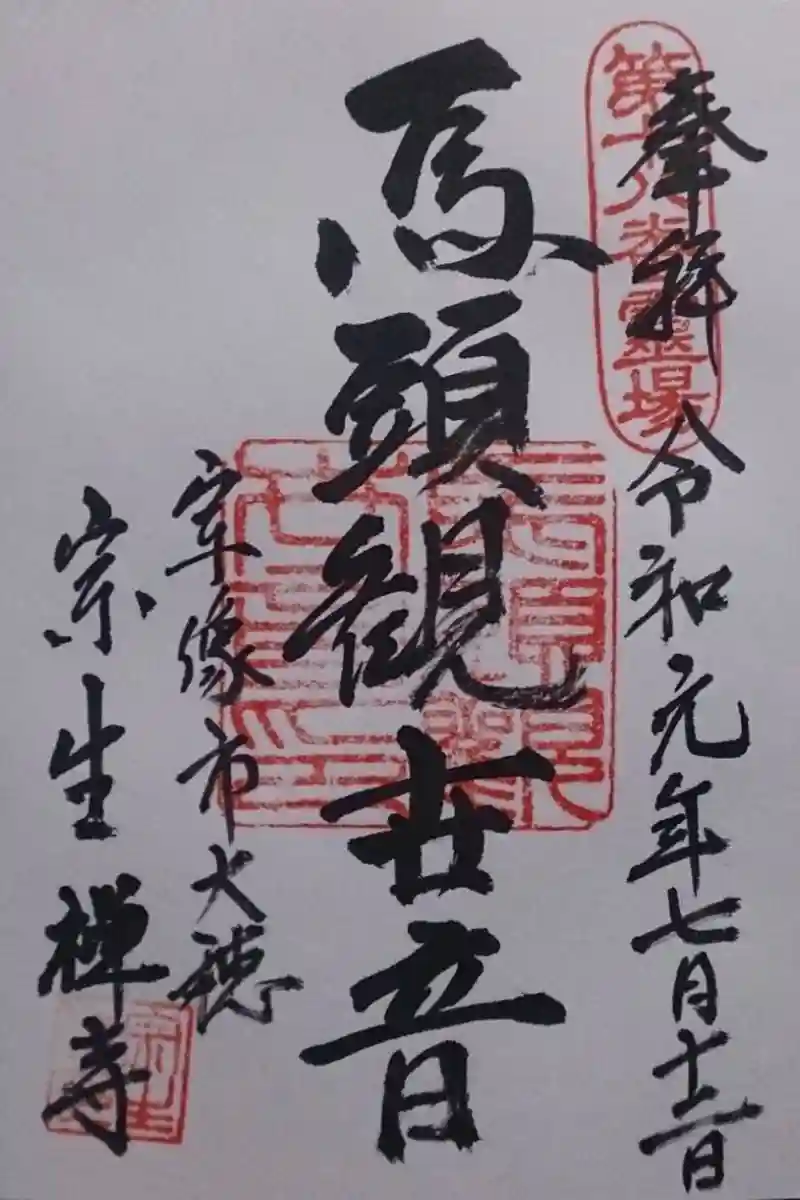 第十八番霊場
奉拝 令和元年七月十二日
馬頭観世音
宗像市大穂
宗生禅寺